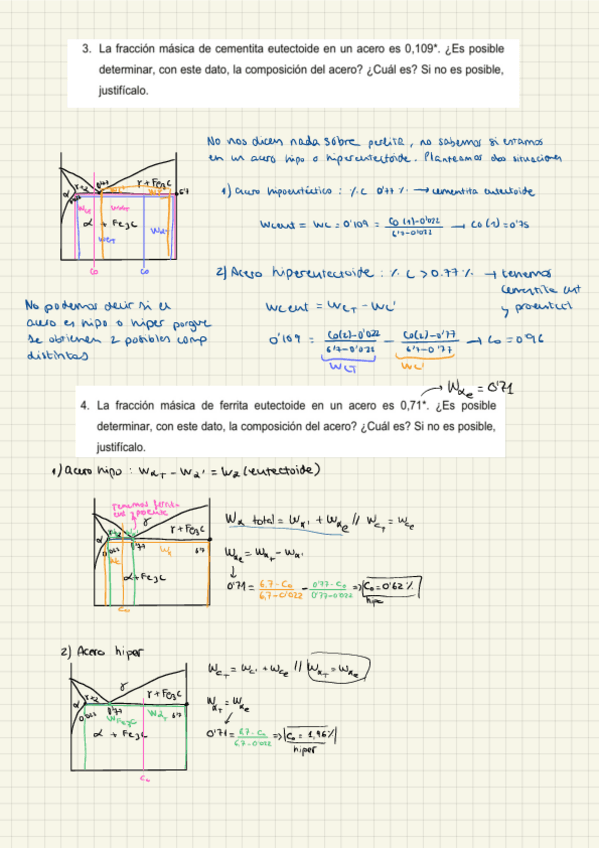 3. La fracción másica de cementita eutectoide en un acero es 0,109*. ¿Es posible
determinar, con este dato, la composición del acero? ¿Cuál es? Si no es posible,
justifícalo.
No nos dicen nada sobre perlita, no sabemos si estamos
en un acero hipo o hipereutectoide. Planteamos dos situaciones
γ + Fe3C
α
0'77
6'7
α + Fe3C
Co
Co
1) Acero hipoeutéctico : % C 0'77 % → cementita eutectoide
Wcent = Wc = 0'109 = Co(1)-0'022 / 6'7-0'022 → Co(1) = 0'75
2) Acero hipereutectoide : % C > 0.77 % → tenemos
cementita eut
y proeutect
Wc cent = WcT - Wc'
0'109 = Co(2)-0'022 / 6'7-0'022 - Co(2)-0'77 / 6'7-0'77 → Co = 0'96
WcT
Wc'
No podemos decir si el
acero es hipo o hiper porque
se obtienen 2 posibles comp
distintas
→ Wαe = 0'71
4. La fracción másica de ferrita eutectoide en un acero es 0,71*. ¿Es posible
determinar, con este dato, la composición del acero? ¿Cuál es? Si no es posible,
justifícalo.
1) Acero hipo : WαT - Wα' = Wα (eutectoide)
tenemos ferrita
eut y proeute
γ
γ + Fe3C
α
0'022
0'77
6'7
Wα
Wc
α + Fe3C
Co
Wα total = Wα' + Wαe // WcT = Wce
Wαe = WαT - Wα'
0'71 = 6,7 - Co / 6,7 - 0'022 - 0'77 - Co / 0'77 - 0'022 ⇒ Co = 0'62 %
hipo
2) Acero hiper
γ
γ + Fe3C
α
0'022
0'77
6'7
WFe3C
WαT
α + Fe3C
Co
WcT = Wc' + Wce // WαT = Wαe
WαT = Wαe
0'71 = 6,7 - Co / 6,7 - 0'022 ⇒ Co = 1,96 %
hiper